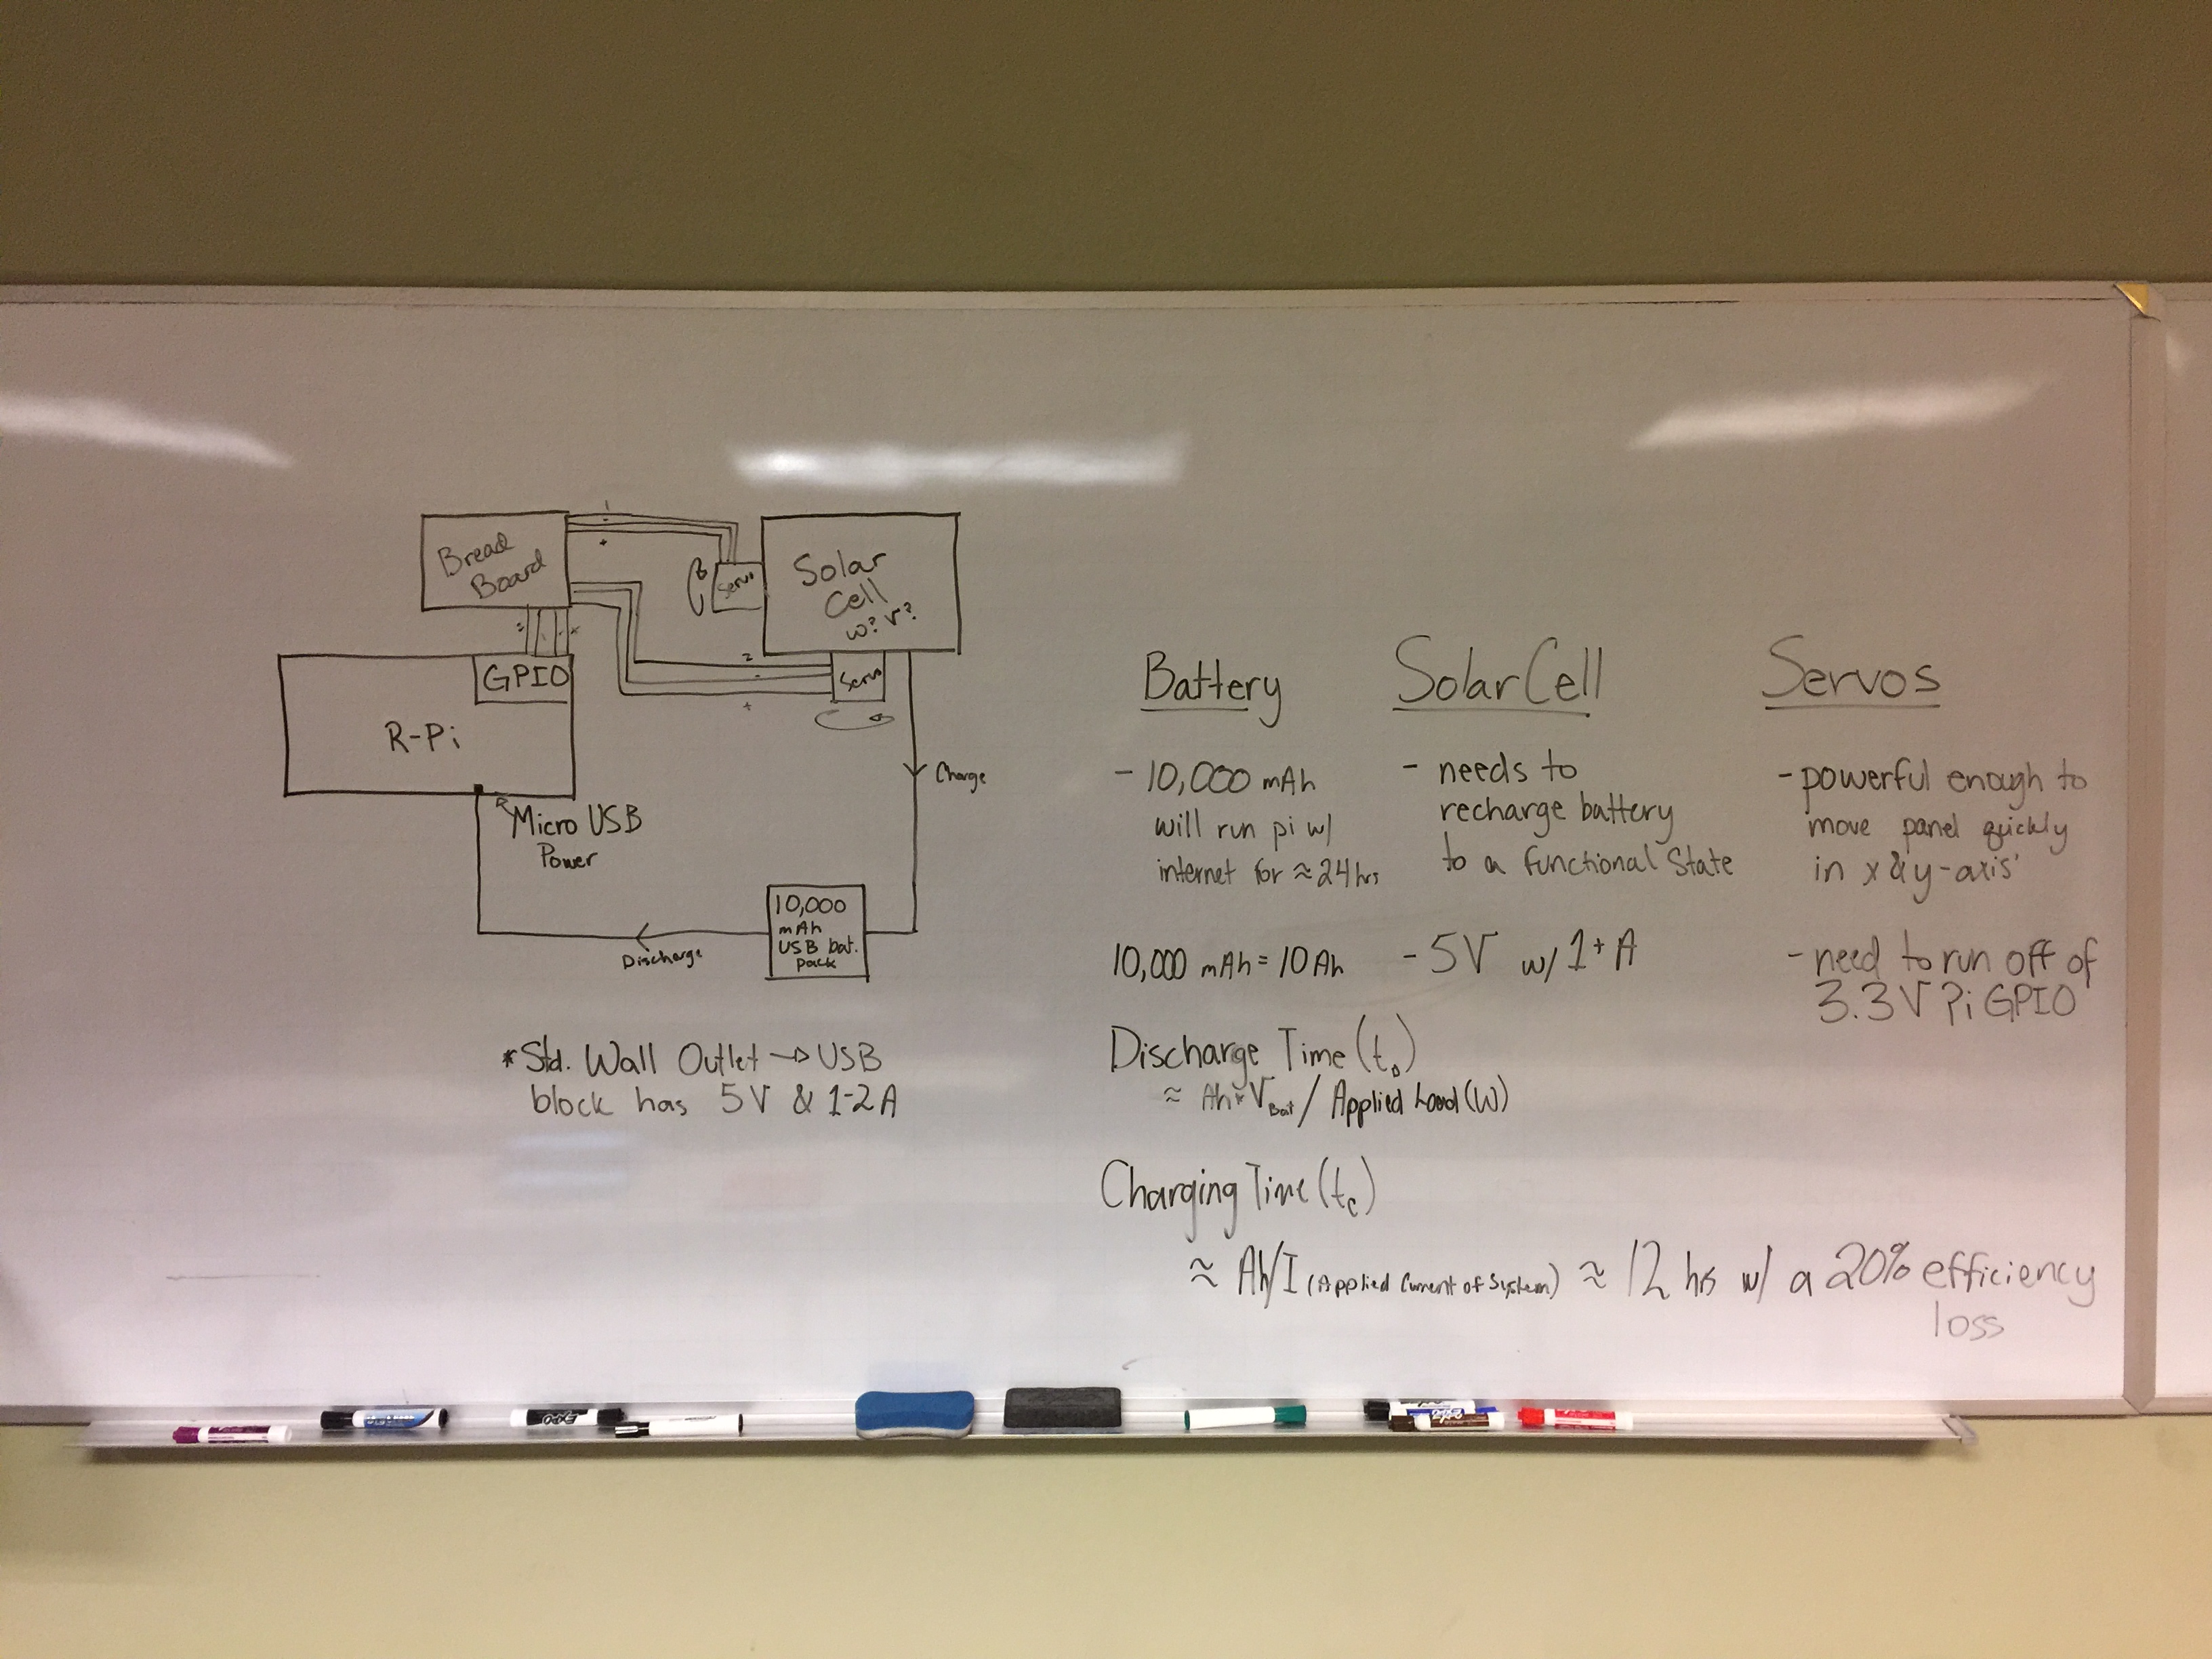 Bread
Board
1
-
+
Servo
Solar
Cell
w? v?
GPIO
R-Pi
2
-
+
Servo
Charge
Micro USB
Power
10,000
mAh
USB bat.
pack
Discharge
*Std. Wall Outlet → USB
block has 5V & 1-2A
Battery
- 10,000 mAh
will run pi w/
internet for ≈ 24hrs
10,000 mAh = 10Ah
Discharge Time (t_D)
≈ Ah * V_Bat / Applied Load (W)
Charging Time (t_c)
≈ Ah/I (Applied Current of System) ≈ 12 hrs w/ a 20% efficiency
loss
Solar Cell
- needs to
recharge battery
to a functional State
- 5V w/ 1+ A
Servos
- powerful enough to
move panel quickly
in x & y-axis'
- need to run off of
3.3V Pi GPIO
EXPO